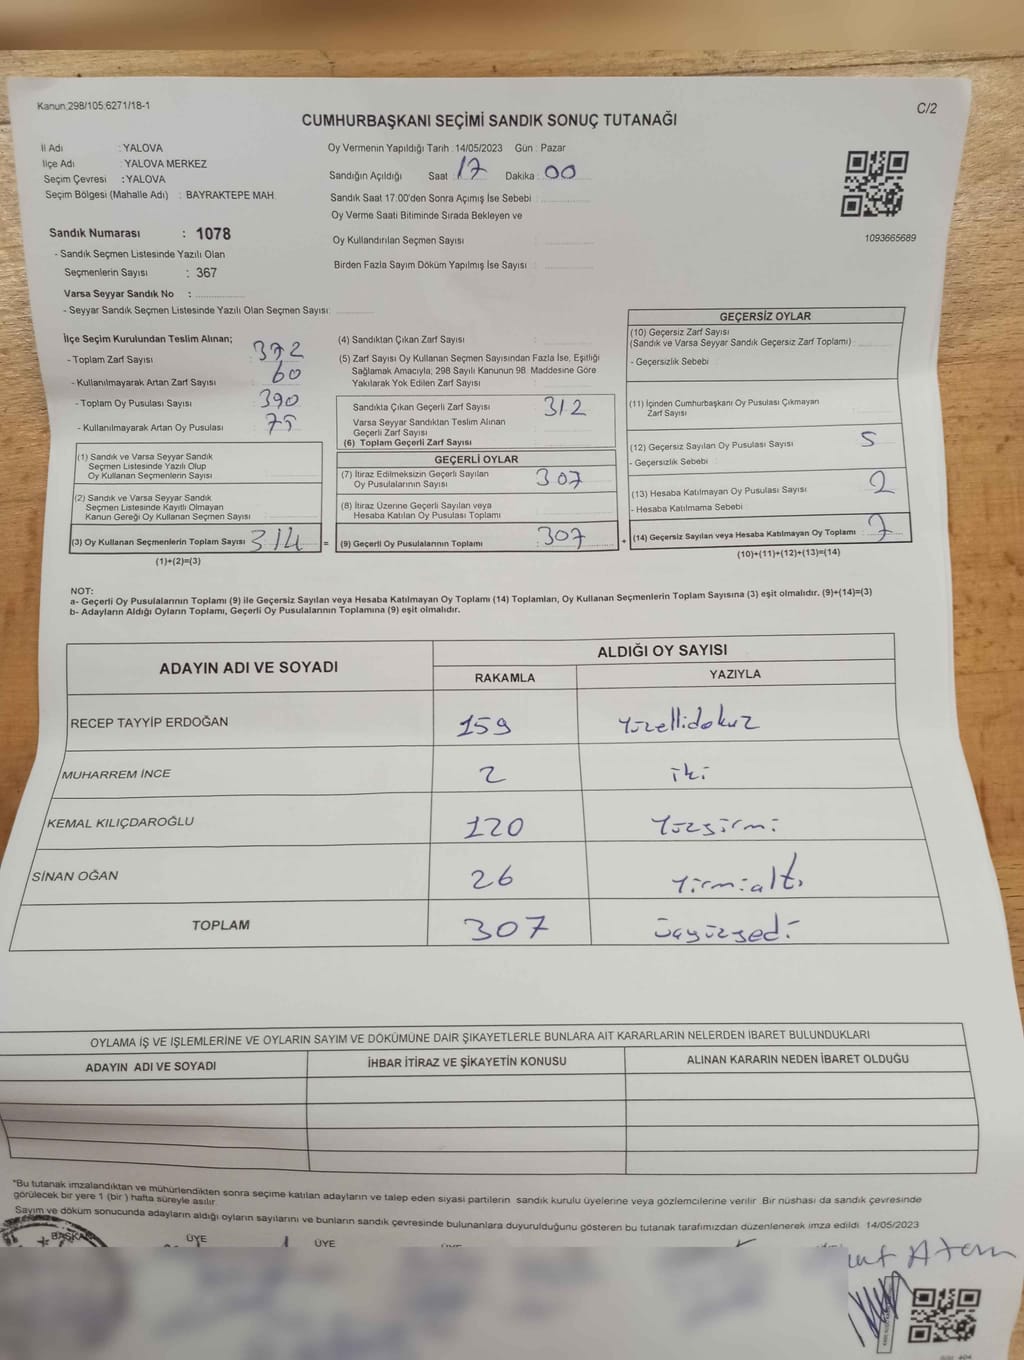 Kanun.298/105.6271/18-1
C/2
CUMHURBAŞKANI SEÇİMİ SANDIK SONUÇ TUTANAĞI
İl Adı : YALOVA
İlçe Adı : YALOVA MERKEZ
Seçim Çevresi : YALOVA
Seçim Bölgesi (Mahalle Adı) : BAYRAKTEPE MAH.
Sandık Numarası : 1078
- Sandık Seçmen Listesinde Yazılı Olan
Seçmenlerin Sayısı : 367
Varsa Seyyar Sandık No :
- Seyyar Sandık Seçmen Listesinde Yazılı Olan Seçmen Sayısı:
Oy Vermenin Yapıldığı Tarih : 14/05/2023 Gün : Pazar
Sandığın Açıldığı Saat : 17 Dakika : 00
Sandık Saat 17:00'den Sonra Açımış İse Sebebi :
Oy Verme Saati Bitiminde Sırada Bekleyen ve
Oy Kullandırılan Seçmen Sayısı :
Birden Fazla Sayım Döküm Yapılmış İse Sayısı :
1093665689
İlçe Seçim Kurulundan Teslim Alınan;
- Toplam Zarf Sayısı : 372
- Kullanılmayarak Artan Zarf Sayısı : 60
- Toplam Oy Pusulası Sayısı : 390
- Kullanılmayarak Artan Oy Pusulası : 75
(1) Sandık ve Varsa Seyyar Sandık
Seçmen Listesinde Yazılı Olup
Oy Kullanan Seçmenlerin Sayısı :
(2) Sandık ve Varsa Seyyar Sandık
Seçmen Listesinde Kayıtlı Olmayan
Kanun Gereği Oy Kullanan Seçmen Sayısı :
(3) Oy Kullanan Seçmenlerin Toplam Sayısı : 314
(1)+(2)=(3)
=
(4) Sandıktan Çıkan Zarf Sayısı :
(5) Zarf Sayısı Oy Kullanan Seçmen Sayısından Fazla İse, Eşitliği
Sağlamak Amacıyla, 298 Sayılı Kanunun 98. Maddesine Göre
Yakılarak Yok Edilen Zarf Sayısı :
Sandıkta Çıkan Geçerli Zarf Sayısı : 312
Varsa Seyyar Sandıktan Teslim Alınan
Geçerli Zarf Sayısı :
(6) Toplam Geçerli Zarf Sayısı :
GEÇERLİ OYLAR
(7) İtiraz Edilmeksizin Geçerli Sayılan
Oy Pusulalarının Sayısı : 307
(8) İtiraz Üzerine Geçerli Sayılan veya
Hesaba Katılan Oy Pusulası Toplamı :
(9) Geçerli Oy Pusulalarının Toplamı : 307
+
GEÇERSİZ OYLAR
(10) Geçersiz Zarf Sayısı
(Sandık ve Varsa Seyyar Sandık Geçersiz Zarf Toplamı) :
- Geçersizlik Sebebi :
(11) İçinden Cumhurbaşkanı Oy Pusulası Çıkmayan
Zarf Sayısı :
(12) Geçersiz Sayılan Oy Pusulası Sayısı : 5
- Geçersizlik Sebebi :
(13) Hesaba Katılmayan Oy Pusulası Sayısı : 2
- Hesaba Katılmama Sebebi :
(14) Geçersiz Sayılan veya Hesaba Katılmayan Oy Toplamı : 7
(10)+(11)+(12)+(13)=(14)
NOT:
a- Geçerli Oy Pusulalarının Toplamı (9) ile Geçersiz Sayılan veya Hesaba Katılmayan Oy Toplamı (14) Toplamları, Oy Kullanan Seçmenlerin Toplam Sayısına (3) eşit olmalıdır. (9)+(14)=(3)
b- Adayların Aldığı Oyların Toplamı, Geçerli Oy Pusulalarının Toplamına (9) eşit olmalıdır.
ADAYIN ADI VE SOYADI
ALDIĞI OY SAYISI
RAKAMLA YAZIYLA
RECEP TAYYİP ERDOĞAN 159 Yüzellidokuz
MUHARREM İNCE 2 iki
KEMAL KILIÇDAROĞLU 120 Yüzyirmi
SİNAN OĞAN 26 Yirmialtı
TOPLAM 307 üçyüzyedi
OYLAMA İŞ VE İŞLEMLERİNE VE OYLARIN SAYIM VE DÖKÜMÜNE DAİR ŞİKAYETLERLE BUNLARA AİT KARARLARIN NELERDEN İBARET BULUNDUKLARI
ADAYIN ADI VE SOYADI İHBAR İTİRAZ VE ŞİKAYETİN KONUSU ALINAN KARARIN NEDEN İBARET OLDUĞU
*Bu tutanak imzalandıktan ve mühürlendikten sonra seçime katılan adayların ve talep eden siyasi partilerin sandık kurulu üyelerine veya gözlemcilerine verilir. Bir nüshası da sandık çevresinde
görülecek bir yere 1 (bir) hafta süreyle asılır.
Sayım ve döküm sonucunda adayların aldığı oyların sayılarını ve bunların sandık çevresinde bulunanlara duyurulduğunu gösteren bu tutanak tarafımızdan düzenlenerek imza edildi. 14/05/2023
BAŞKAN ÜYE ÜYE